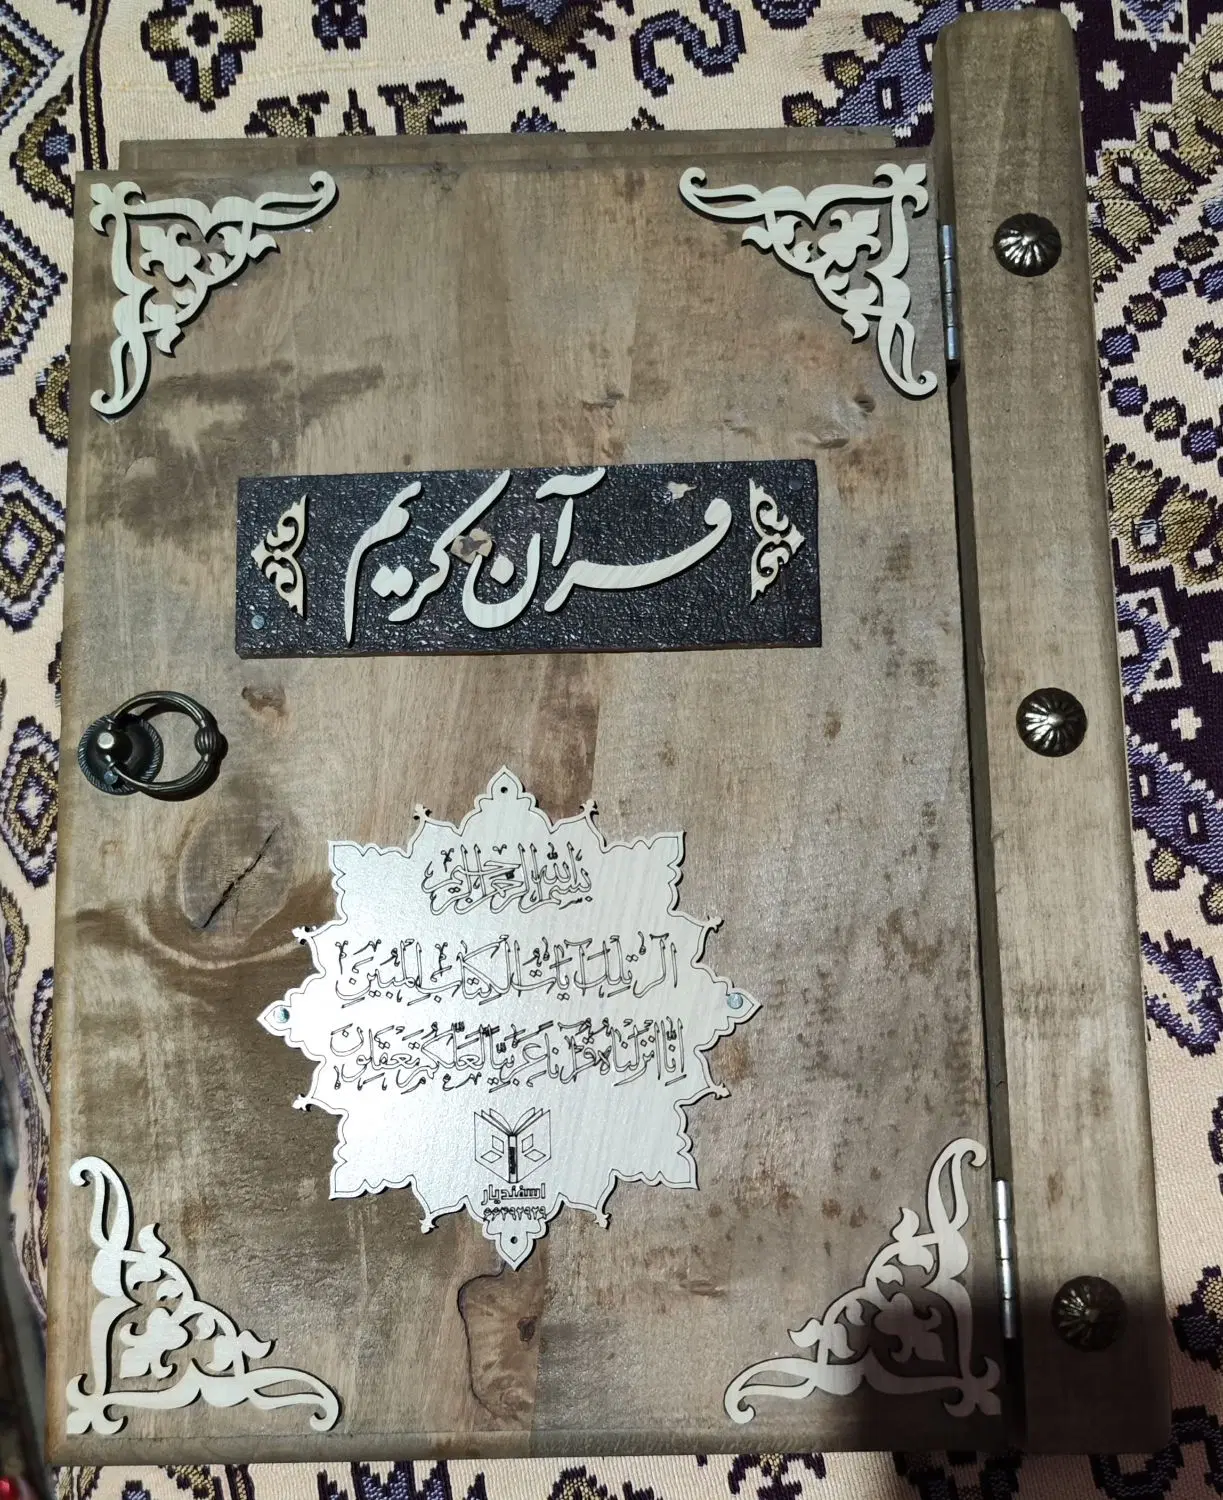 قرآن کریم
بسم الله الرحمن الرحیم
الر تِلْكَ آيَاتُ الْكِتَابِ الْمُبِينِ
إِنَّا أَنْزَلْنَاهُ قُرْآنًا عَرَبِيًّا لَعَلَّكُمْ تَعْقِلُونَ
اسفندیار
۶۶۴۹۲۹۲۹